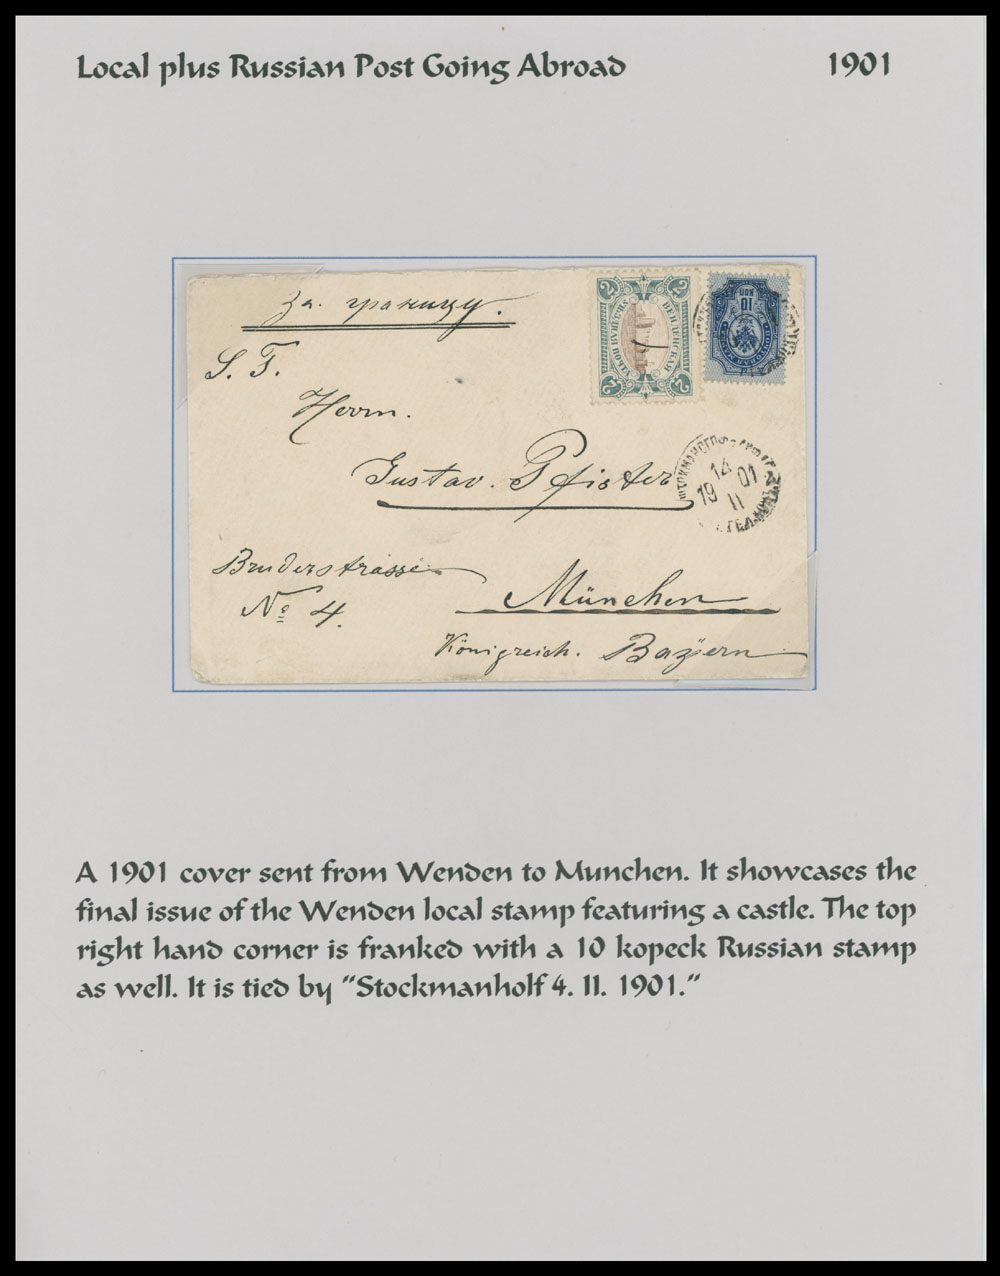 Local plus Russian Post Going Abroad 1901
За границу.
S. T.
Herrn.
Gustav. Pfister
Bruderstrasse
№ 4.
München
Königreich. Bayern
2 2
ВЕНДЕНСКАЯ
2 2
10 КОП
14
19 01
II
A 1901 cover sent from Wenden to Munchen. It showcases the
final issue of the Wenden local stamp featuring a castle. The top
right hand corner is franked with a 10 kopeck Russian stamp
as well. It is tied by "Stockmanholf 4. II. 1901."